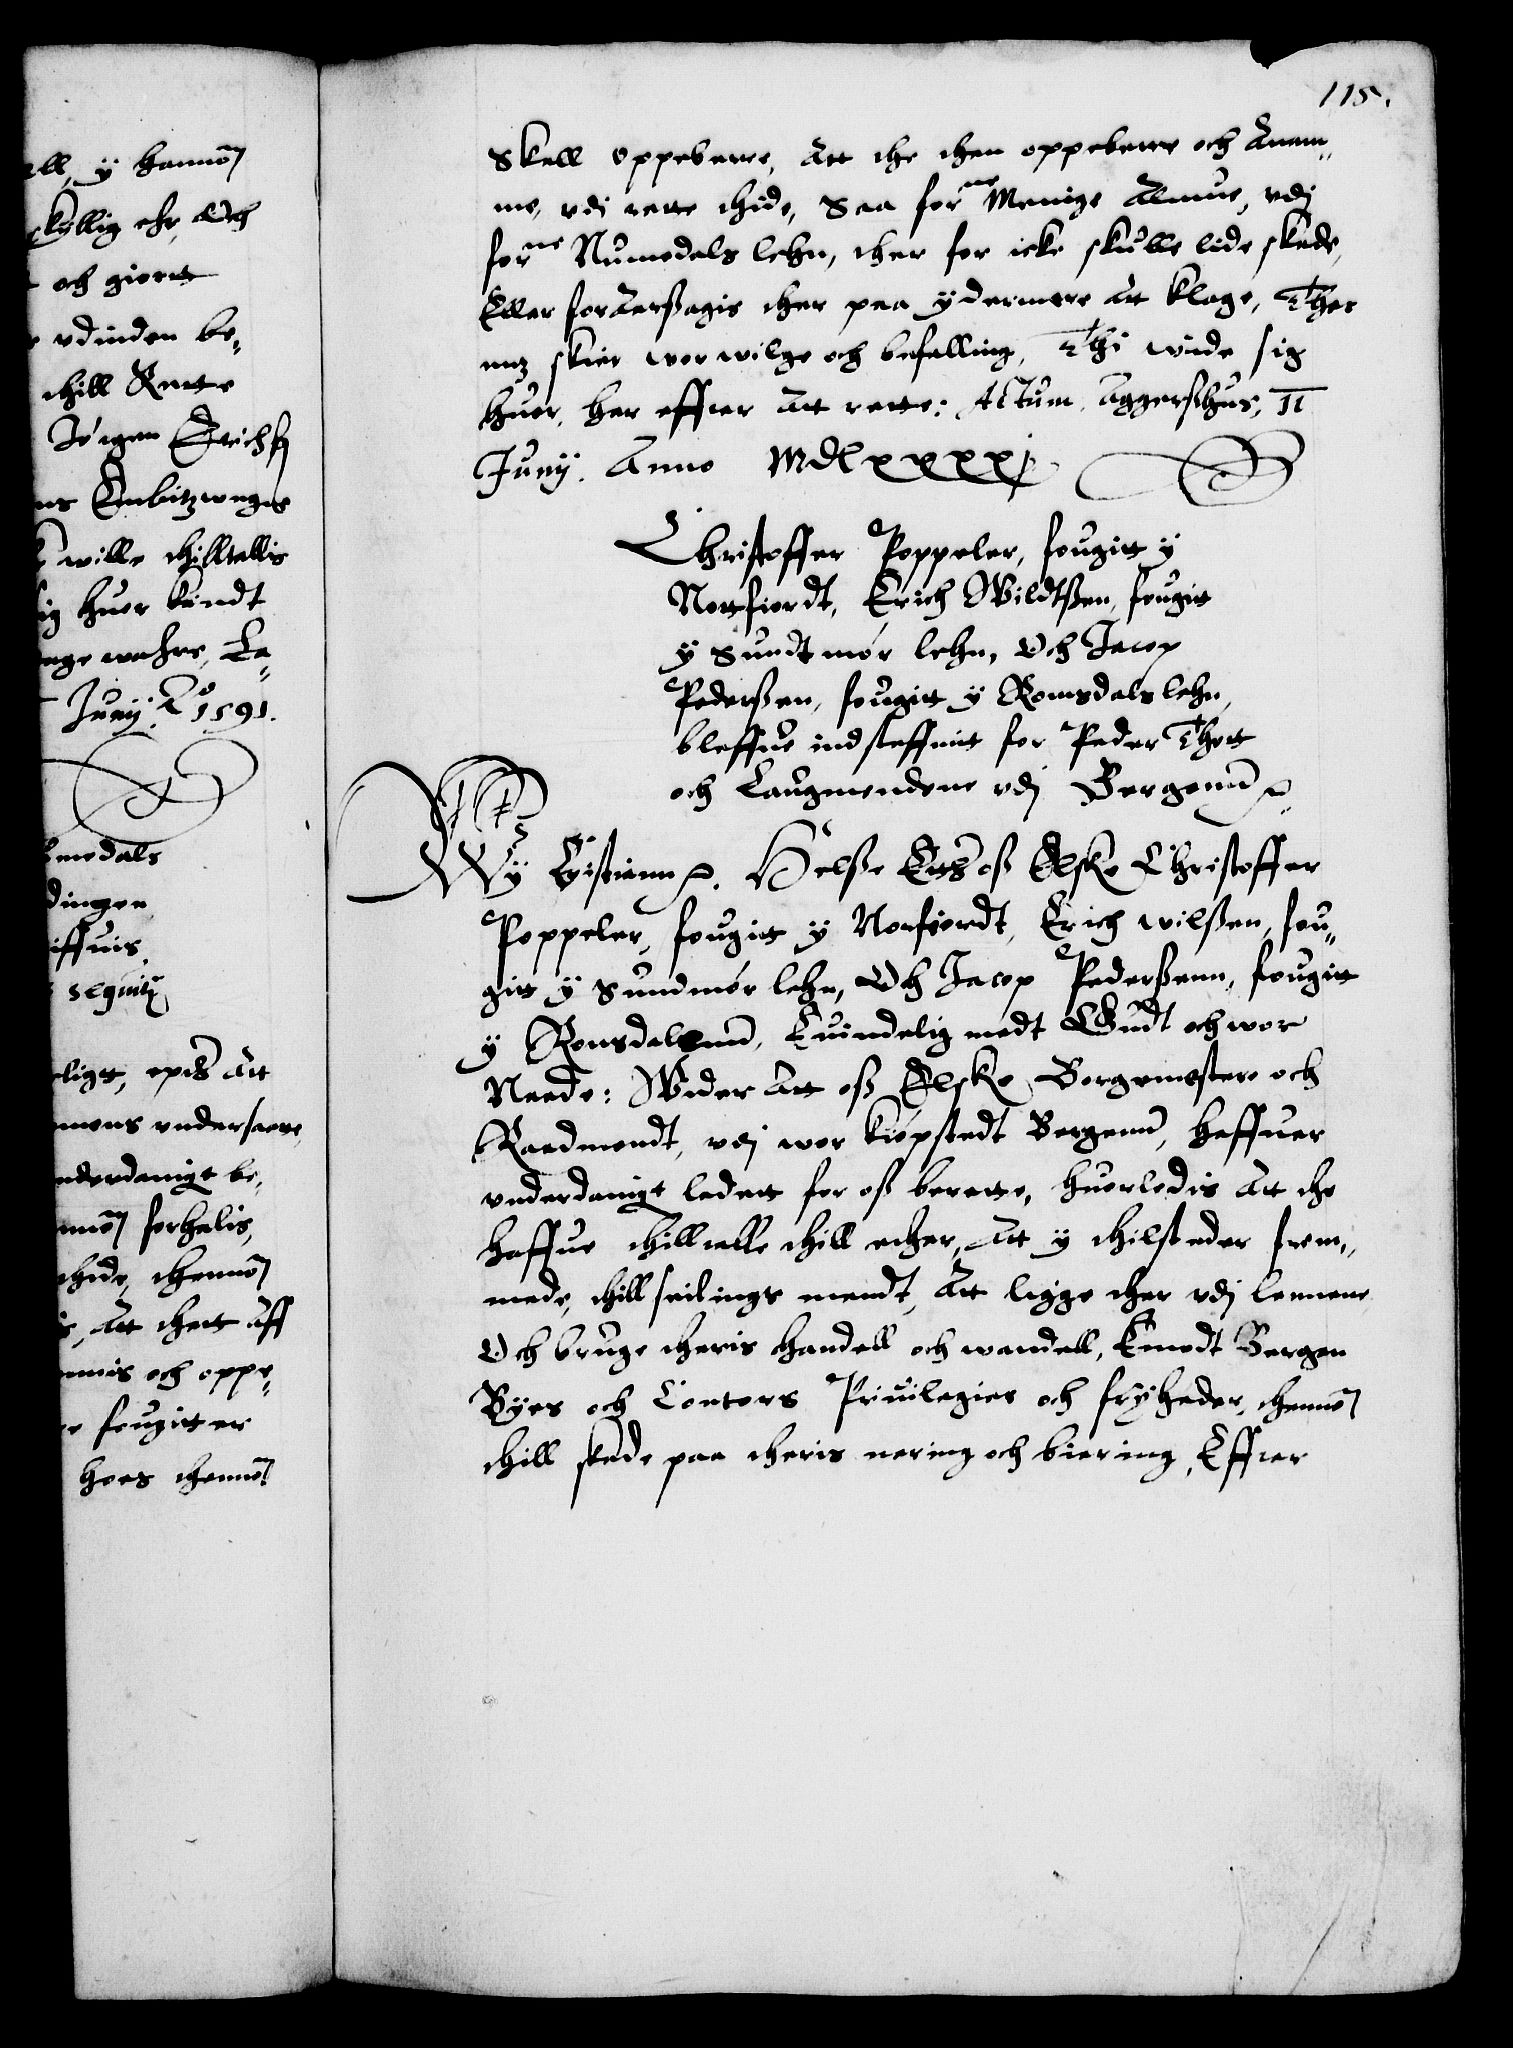 ell, y hannom
skyllig ehr, Och
och giortt
vdinden be„
thill Rette
Jørgen Erichß
wille thilltallis
sig huer kandt
Juny Ao 1591.
umedals
dingen
sequitur
ligt, epter Att
mens vndersaatte
nderdanigt be„
forhalis,
thide, thennom
Att thett Aff
ammis och oppe„
fougitter
hoes thennom
115.
Skall Oppeberre, Att the then oppeberre och Anam„
me, vdj rette thide, Saa forne Menige Almue, vdj
forne Numedals lehn, ther for icke skulle lide skade,
Eller forAarßagis ther paa ydermere Att klage, Ther
mz skier wor wilge och befalling, Thi wide sig
huer, her effter Att rette: Actum Aggerßhus, II
Juny. Anno MdLxxxxj
Christoffer Poppeler, fougitt y
Nortfiordt, Erich Wildtßen, fougitt
y Sundtmør lehn, Och Jacop
Pederßen, fougitt y Romsdals lehn,
bleffue indsteffnit for Peder Thott
och Laugmendene vdj Bergenn
Wy Cristiann. Helße Etther oß Elske Christoffer
Poppeler, fougitt y Norfiordt, Erich wilßen, fou„
gitt y Sundmør lehn, Och Jacop Pederßenn, fougitt
y Romsdallenn, Euindelig medt Gudt och wor
Naade: Wider Att oß Elske Borgemestere och
Raadmendt, vdj wor kiøpstedt Bergenn, haffuer
vnderdanigt ladett for oß berette, huorledis Att the
haffue thilltalle thill ether, Att y thilsteder frem„
mede, thill seilings mendt, Att ligge ther vdj lennene
Och bruge theris handell och wandell, Emodt Bergen
Byes och Contors Priuilegier och fryheder, thennom
thill skade paa theris nering och biering, Effter